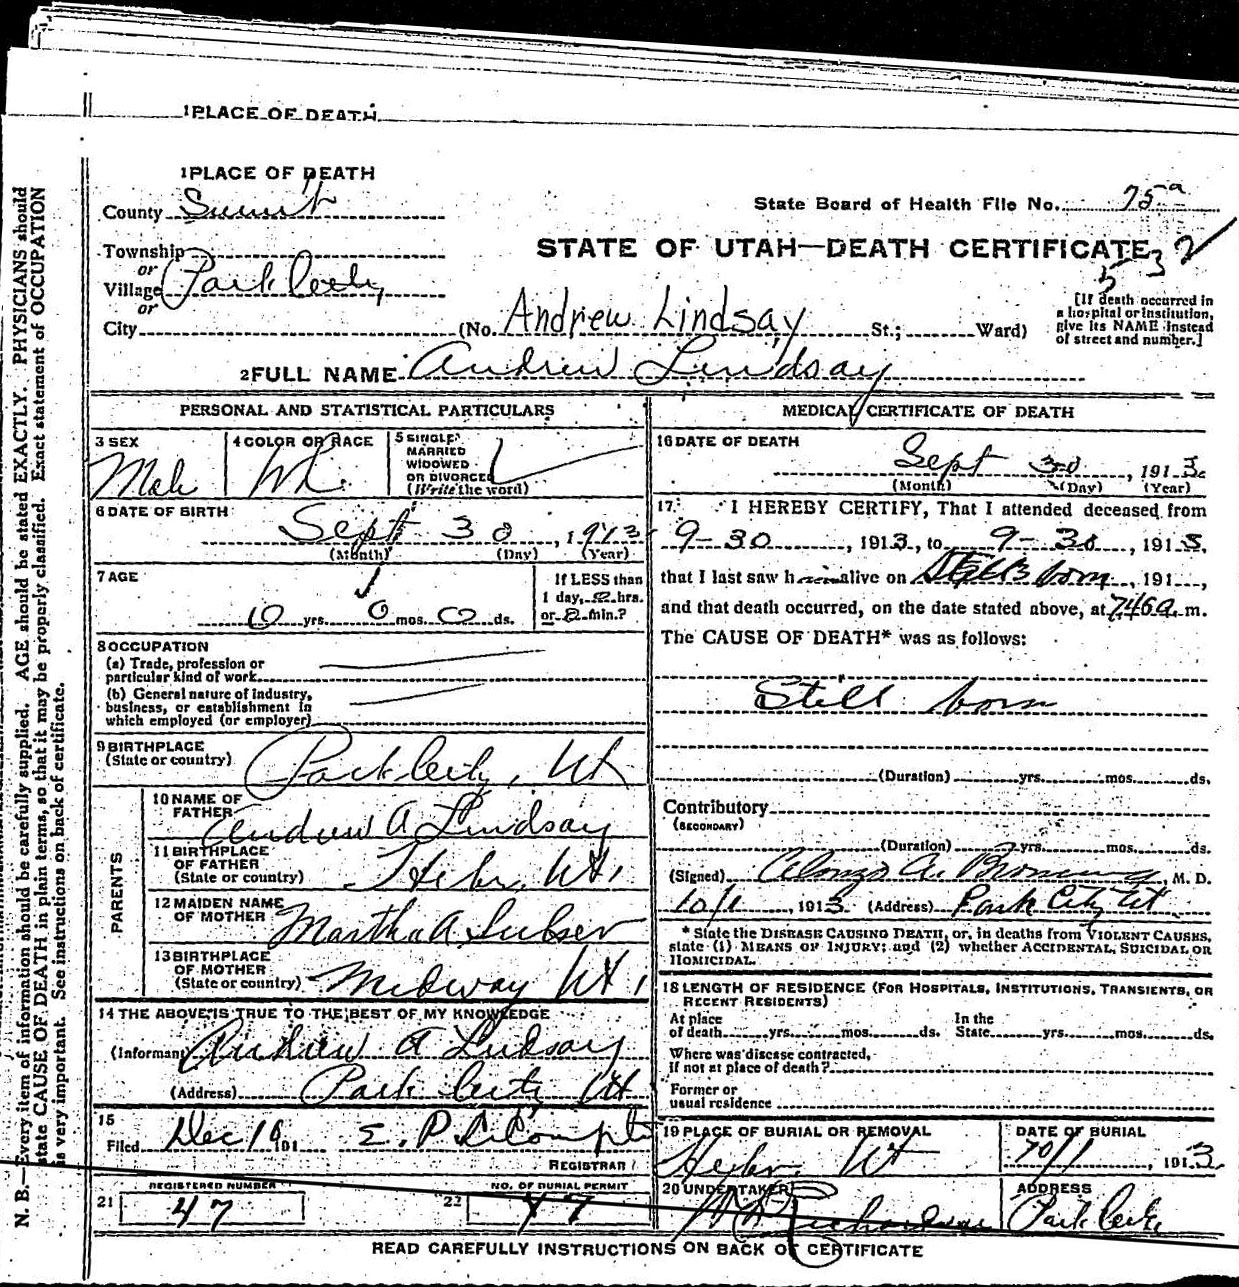 1 PLACE OF DEATH
1 PLACE OF DEATH
County Summit
State Board of Health File No. 75a
Township
or
Village Park City
or
City
STATE OF UTAH—DEATH CERTIFICATE
532
(No. Andrew Lindsay St.; Ward)
[If death occurred in
a hospital or institution,
give its NAME instead
of street and number.]
2 FULL NAME Andrew Lindsay
PERSONAL AND STATISTICAL PARTICULARS
3 SEX
Male
4 COLOR OR RACE
Wh.
5 SINGLE
MARRIED
WIDOWED
OR DIVORCED
(Write the word)
6 DATE OF BIRTH
Sept 30, 1913
(Month) (Day) (Year)
7 AGE
0 yrs. 0 mos. 0 ds.
If LESS than
1 day, 0 hrs.
or 0 min.?
8 OCCUPATION
(a) Trade, profession or
particular kind of work
(b) General nature of industry,
business, or establishment in
which employed (or employer)
9 BIRTHPLACE
(State or country)
Park City, Ut
PARENTS
10 NAME OF
FATHER
Andrew A Lindsay
11 BIRTHPLACE
OF FATHER
(State or country)
Heber, Ut,
12 MAIDEN NAME
OF MOTHER
Martha A
13 BIRTHPLACE
OF MOTHER
(State or country)
Midway Ut,
14 THE ABOVE IS TRUE TO THE BEST OF MY KNOWLEDGE
(Informant Andrew A Lindsay
(Address) Park City Ut
15
Filed Dec 16 191 E. P.
REGISTRAR
REGISTERED NUMBER
21 47
NO. OF BURIAL PERMIT
22 47
MEDICAL CERTIFICATE OF DEATH
16 DATE OF DEATH
Sept 30, 1913.
(Month) (Day) (Year)
17 I HEREBY CERTIFY, That I attended deceased from
9-30, 1913, to 9-30, 1913,
that I last saw h alive on Still born, 191 ,
and that death occurred, on the date stated above, at 7.46a m.
The CAUSE OF DEATH* was as follows:
Still born
(Duration) yrs. mos. ds.
Contributory
(SECONDARY)
(Duration) yrs. mos. ds.
(Signed) Alonzo A. , M. D.
10/1, 1913 (Address) Park City Ut
* State the DISEASE CAUSING DEATH, or, in deaths from VIOLENT CAUSES,
state (1) MEANS OF INJURY; and (2) whether ACCIDENTAL, SUICIDAL OR
HOMICIDAL.
18 LENGTH OF RESIDENCE (FOR HOSPITALS, INSTITUTIONS, TRANSIENTS, OR
RECENT RESIDENTS)
At place
of death yrs. mos. ds.
In the
State yrs. mos. ds.
Where was disease contracted,
if not at place of death?
Former or
usual residence
19 PLACE OF BURIAL OR REMOVAL
Heber, Ut
DATE OF BURIAL
10/1, 1913
20 UNDERTAKER
Richardson
ADDRESS
Park City
READ CAREFULLY INSTRUCTIONS ON BACK OF CERTIFICATE
N. B.—Every item of information should be carefully supplied. AGE should be stated EXACTLY. PHYSICIANS should
state CAUSE OF DEATH in plain terms, so that it may be properly classified. Exact statement of OCCUPATION
is very important. See instructions on back of certificate.